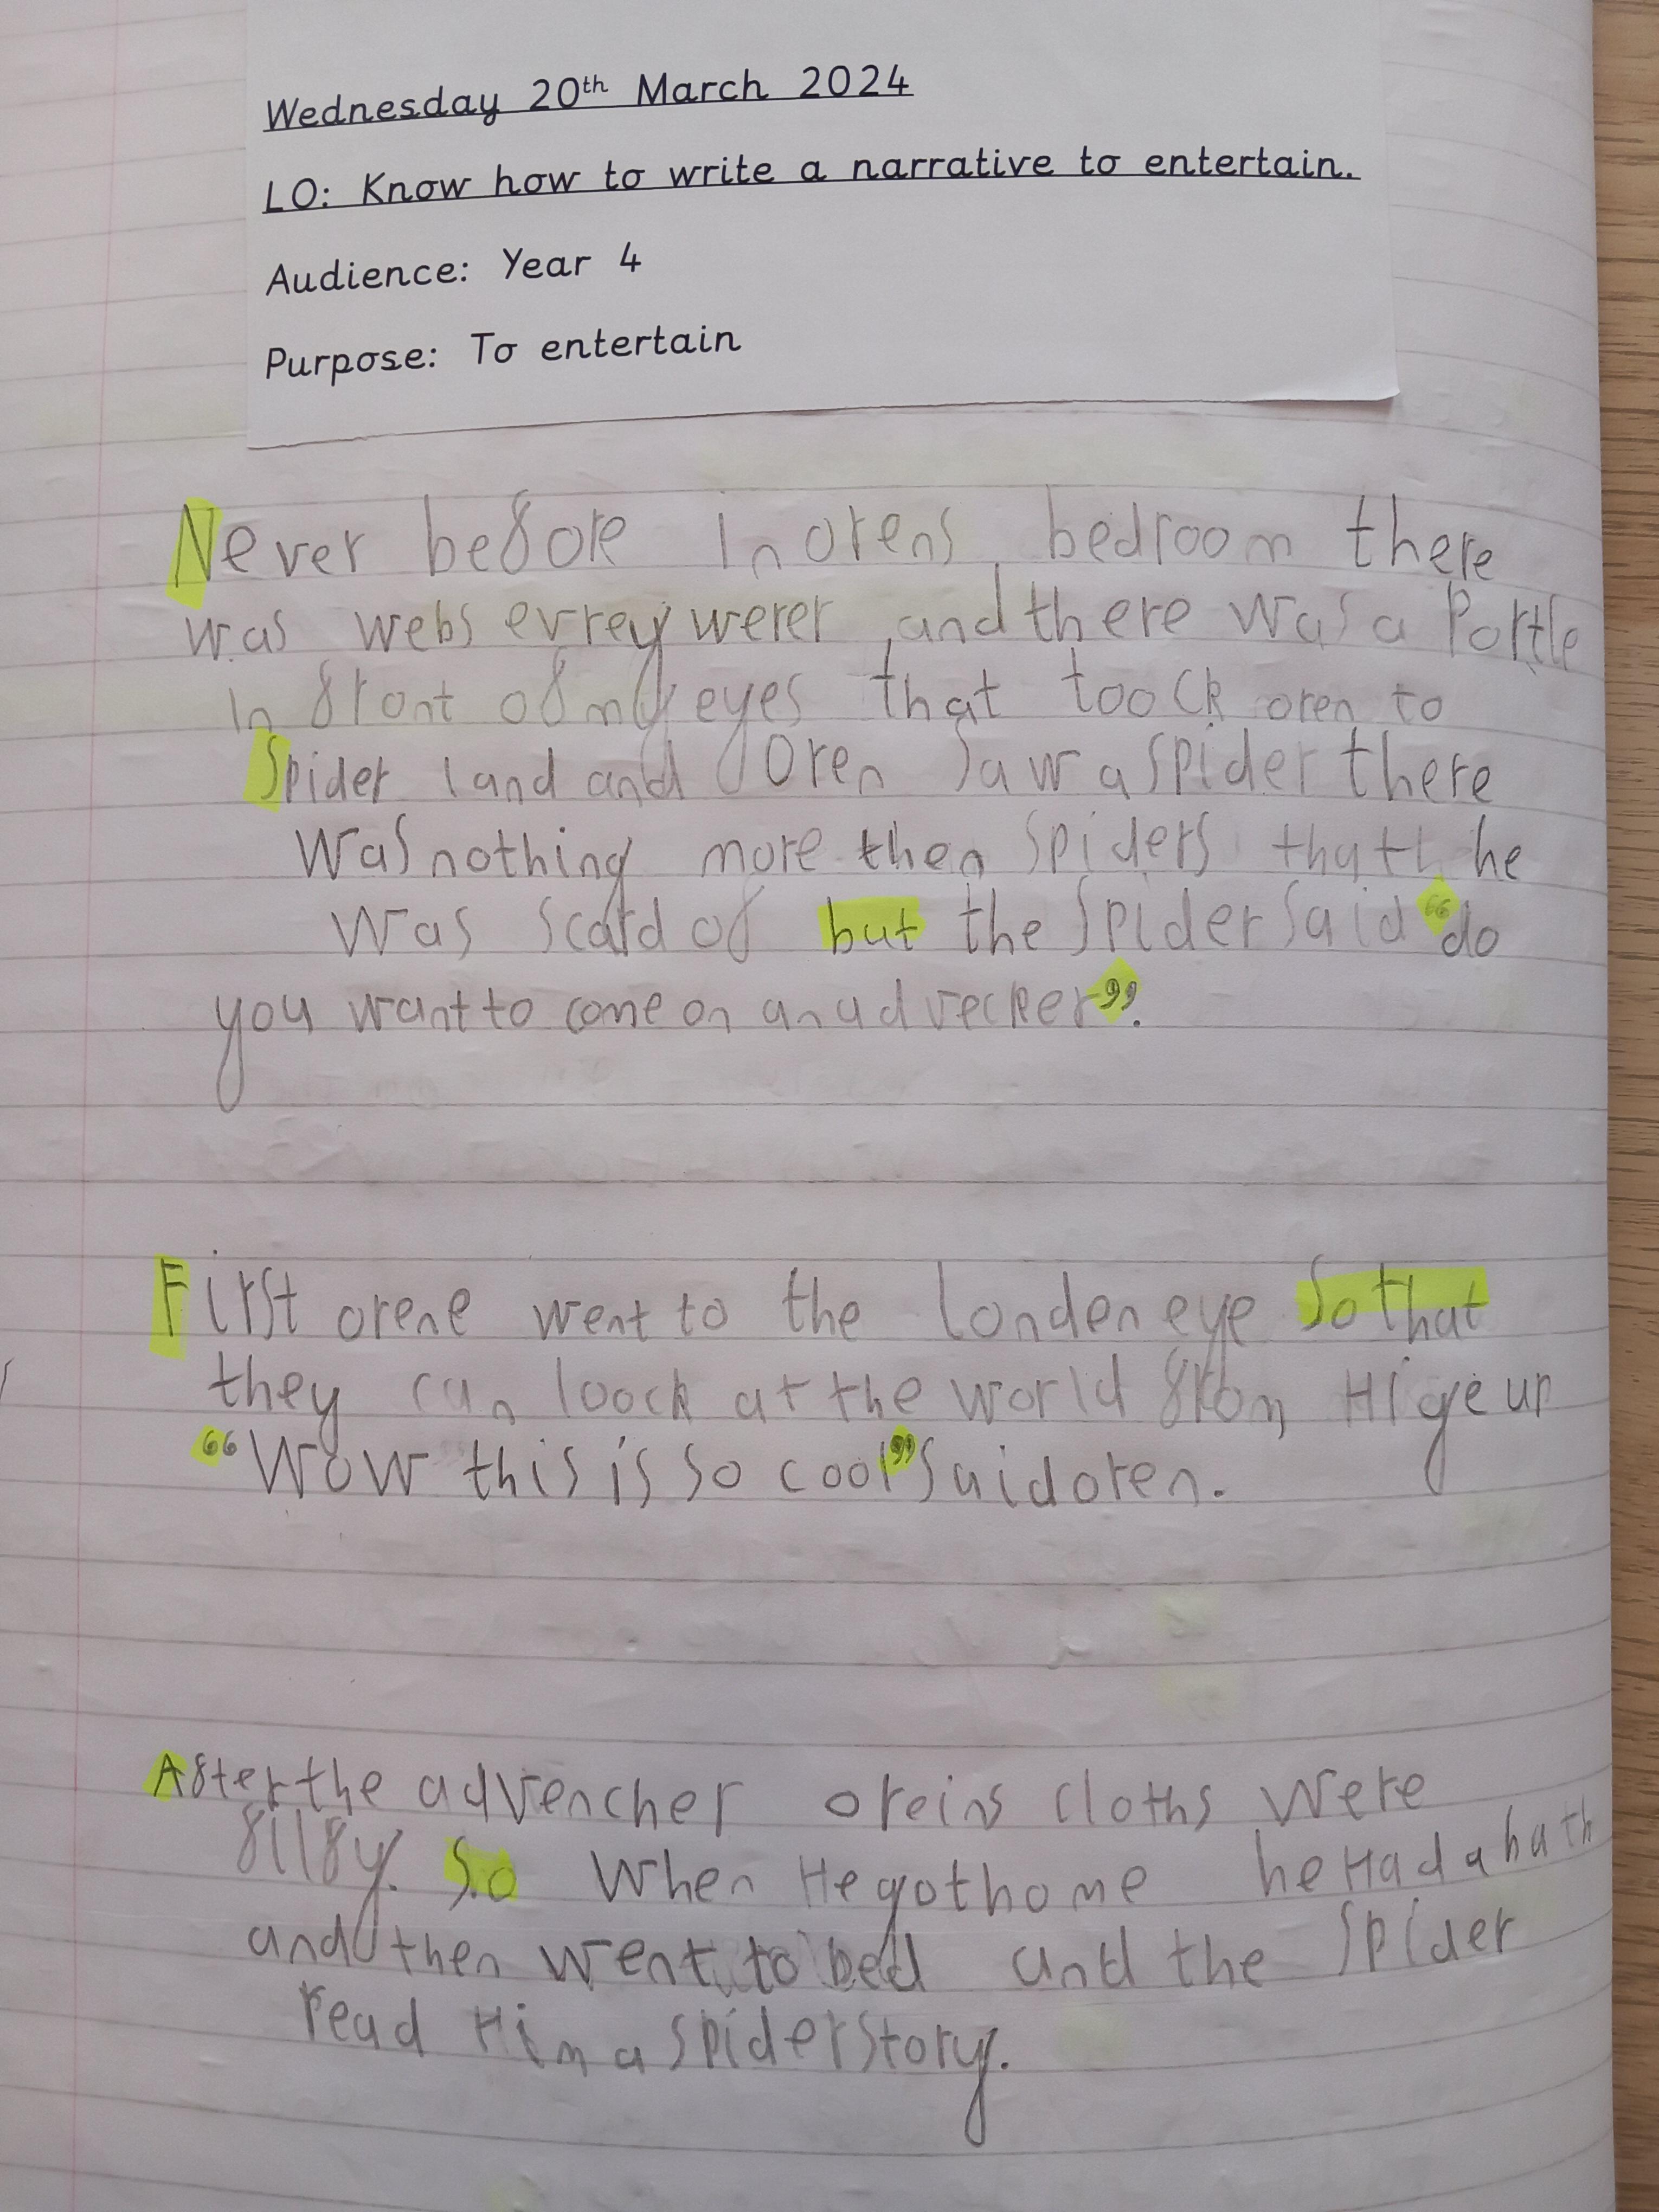 Wednesday 20th March 2024
LO: Know how to write a narrative to entertain.
Audience: Year 4
Purpose: To entertain
Never before in orens bedroom there
was webs evrey werer, and there was a Portle
in front of my eyes that toock oren to
Spider land and Oren saw a spider there
was nothing more then spiders that he
was scard of but the spider said "do
you want to come on an advecher".
First orene went to the londen eye so that
they can loock at the world from Hige up
"Wow this is so cool" said oren.
After the advencher oreins cloths were
filfy. So when He got home he Had a bath
and then went to bed and the spider
read Him a spider story.